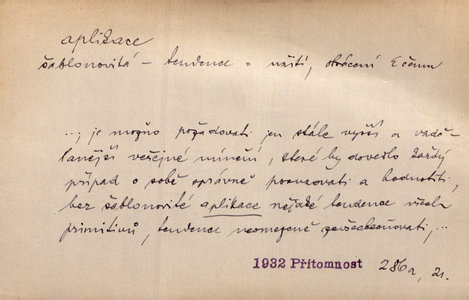 aplikace
šablonovitá – tendence = užití, obrácení k čemu
..., je možno požadovati jen stále vyšší a vzdě-
lanější veřejné mínění, které by dovedlo každý
případ o sobě správně posuzovati a hodnotiti,
bez šablonovité aplikace nějaké tendence všech
primitivů, tendence neomezeně zevšeobecňovati, ...
1932 Přítomnost 286a, 21.